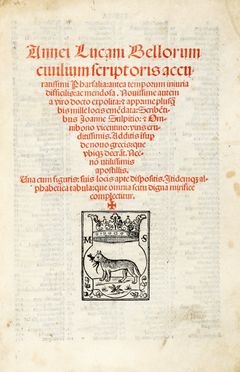 Annei Lucani Bellorum
ciuilium scriptoris accu
ratissimi Pharsalia: antea temporum iniuria
difficilis: ac mendosa. Nouissime autem
a viro docto expolita: et apprime plusq̃
bis mille locis emẽdata: Scribẽ-
tibus Joanne Sulpitio: et Om-
nibono vicentino: viris eru-
ditissimis. Additis insup
de nouo: grecis: que
vbiq̃ deerãt. Nec
nõ vtilissimis
apostillis.
Una cum figuris: suis locis apte dispositis. Itidemq̃ al-
phabetica tabula: que omnia scitu digna mirifice
complectitur.
M S